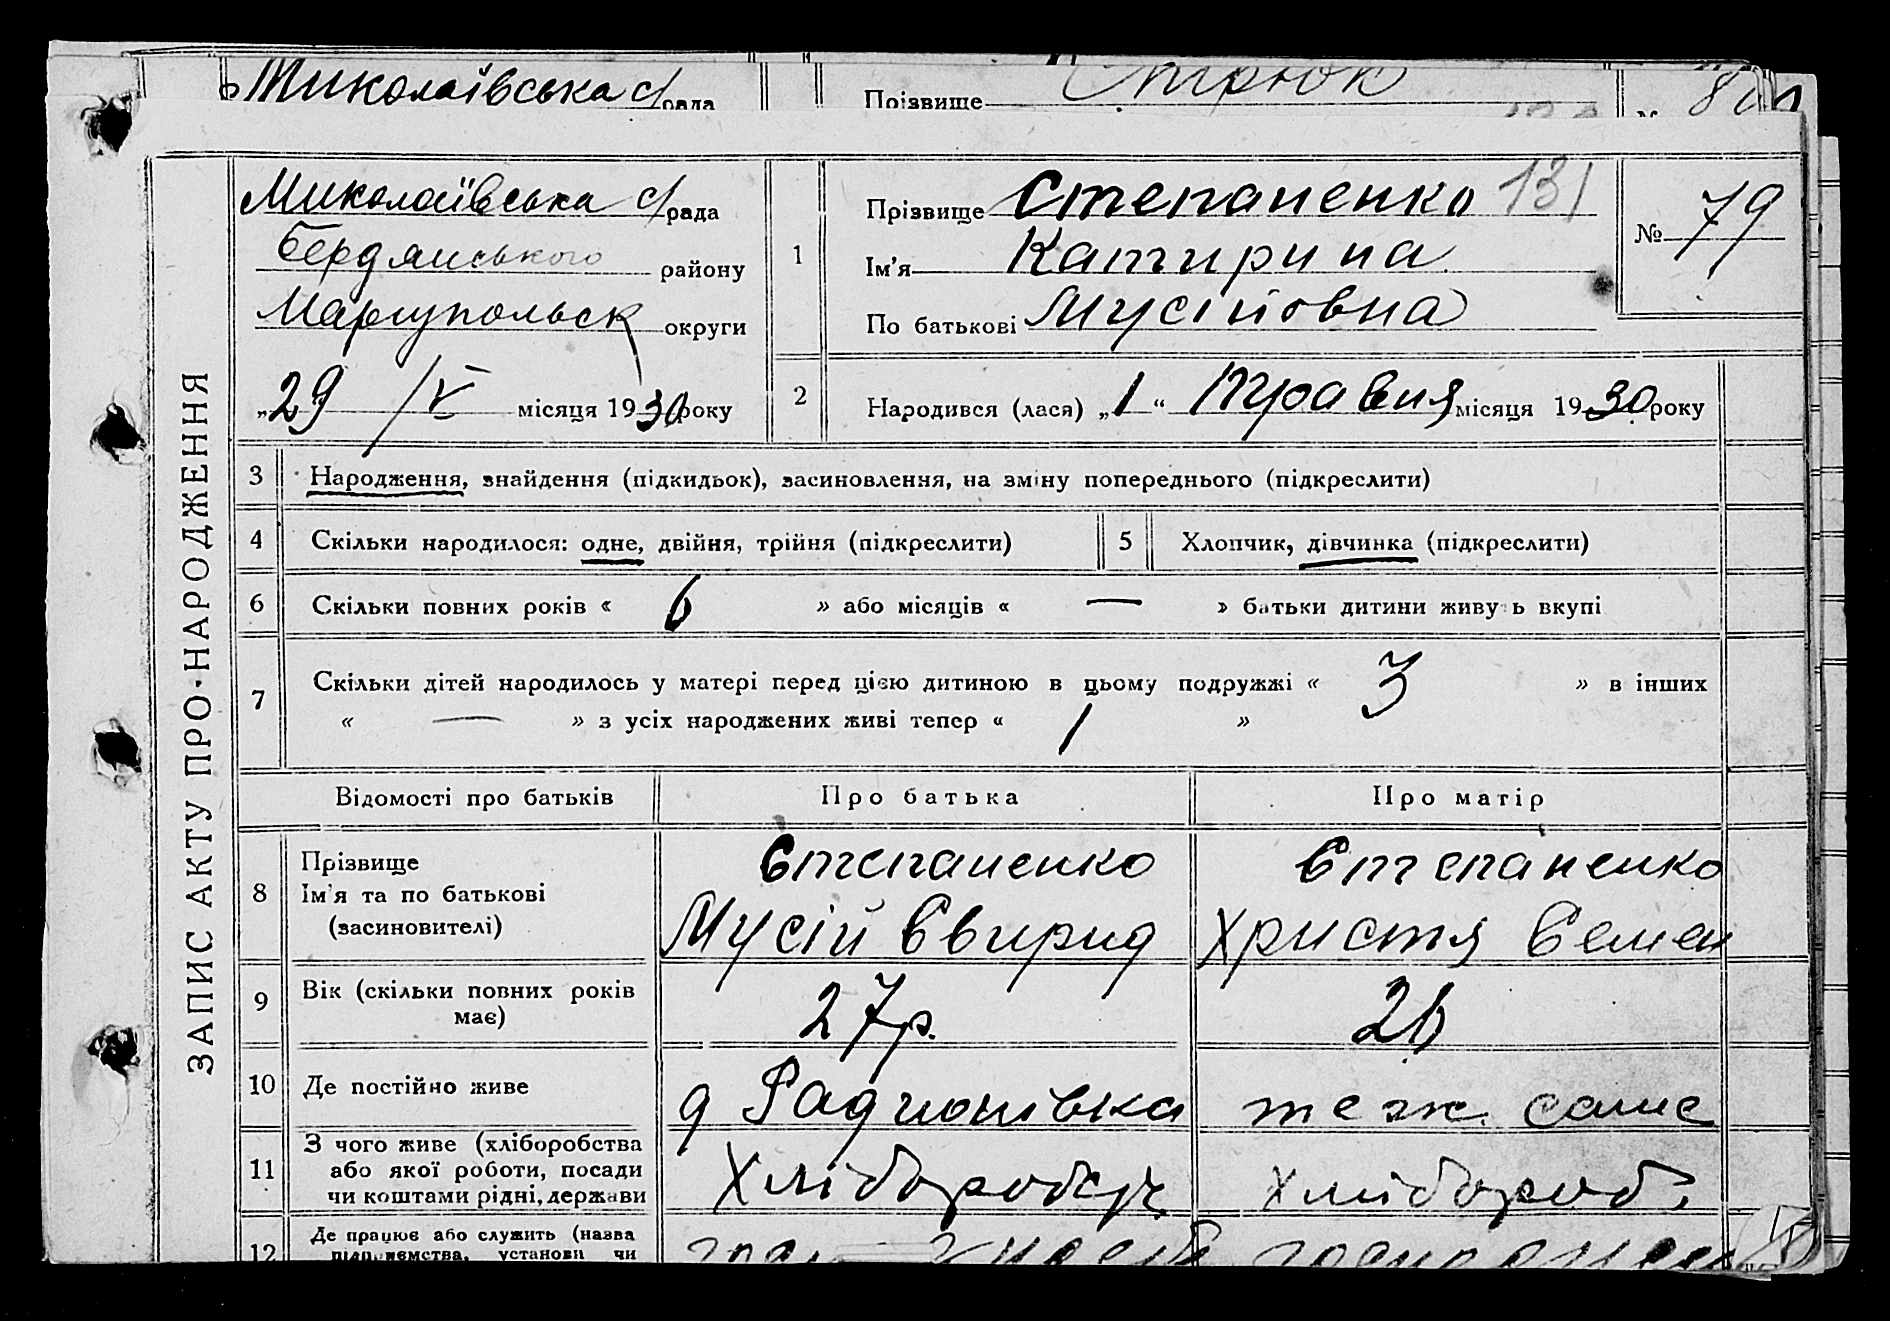 Миколаївська с/рада
Прізвище
80
ЗАПИС АКТУ ПРО НАРОДЖЕННЯ
Миколаївська с/рада
Бердянського району
Маріупольск округи
„29 /V місяця 1930 року
1
Прізвище Степаненко 131
Ім’я Катирина
По батькові Мусійовна
№ 79
2
Народився (лася) „1“ Травня місяця 1930 року
3 Народження, знайдення (підкидьок), засиновлення, на зміну попереднього (підкреслити)
4 Скільки народилося: одне, двійня, трійня (підкреслити) 5 Хлопчик, дівчинка (підкреслити)
6 Скільки повних років « 6 » або місяців « — » батьки дитини живуть вкупі
7 Скільки дітей народилось у матері перед цією дитиною в цьому подружжі « 3 » в інших
« — » з усіх народжених живі тепер « 1 »
Відомості про батьків Про батька Про матір
8 Прізвище
Ім’я та по батькові
(засиновителі)
Степаненко
Мусій Свирид
Степаненко
Христя Семен
9 Вік (скільки повних років
має)
27 р.
26
10 Де постійно живе
д Радионівка
теж саме
11 З чого живе (хліборобства
або якої роботи, посади
чи коштами рідні, держави
Хлібороб
Хлібороб
12 Де працює або служить (назва
підприємства, установи чи